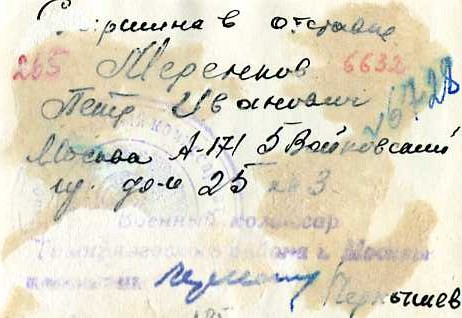 Старшина в отставке
265 Меренков 6632
Петр Иванович 6728
Москва А-171 5 Войковский
пр. дом 25 кв 3.
Военный комиссар
Тимирязевского района г. Москвы
Чернышев